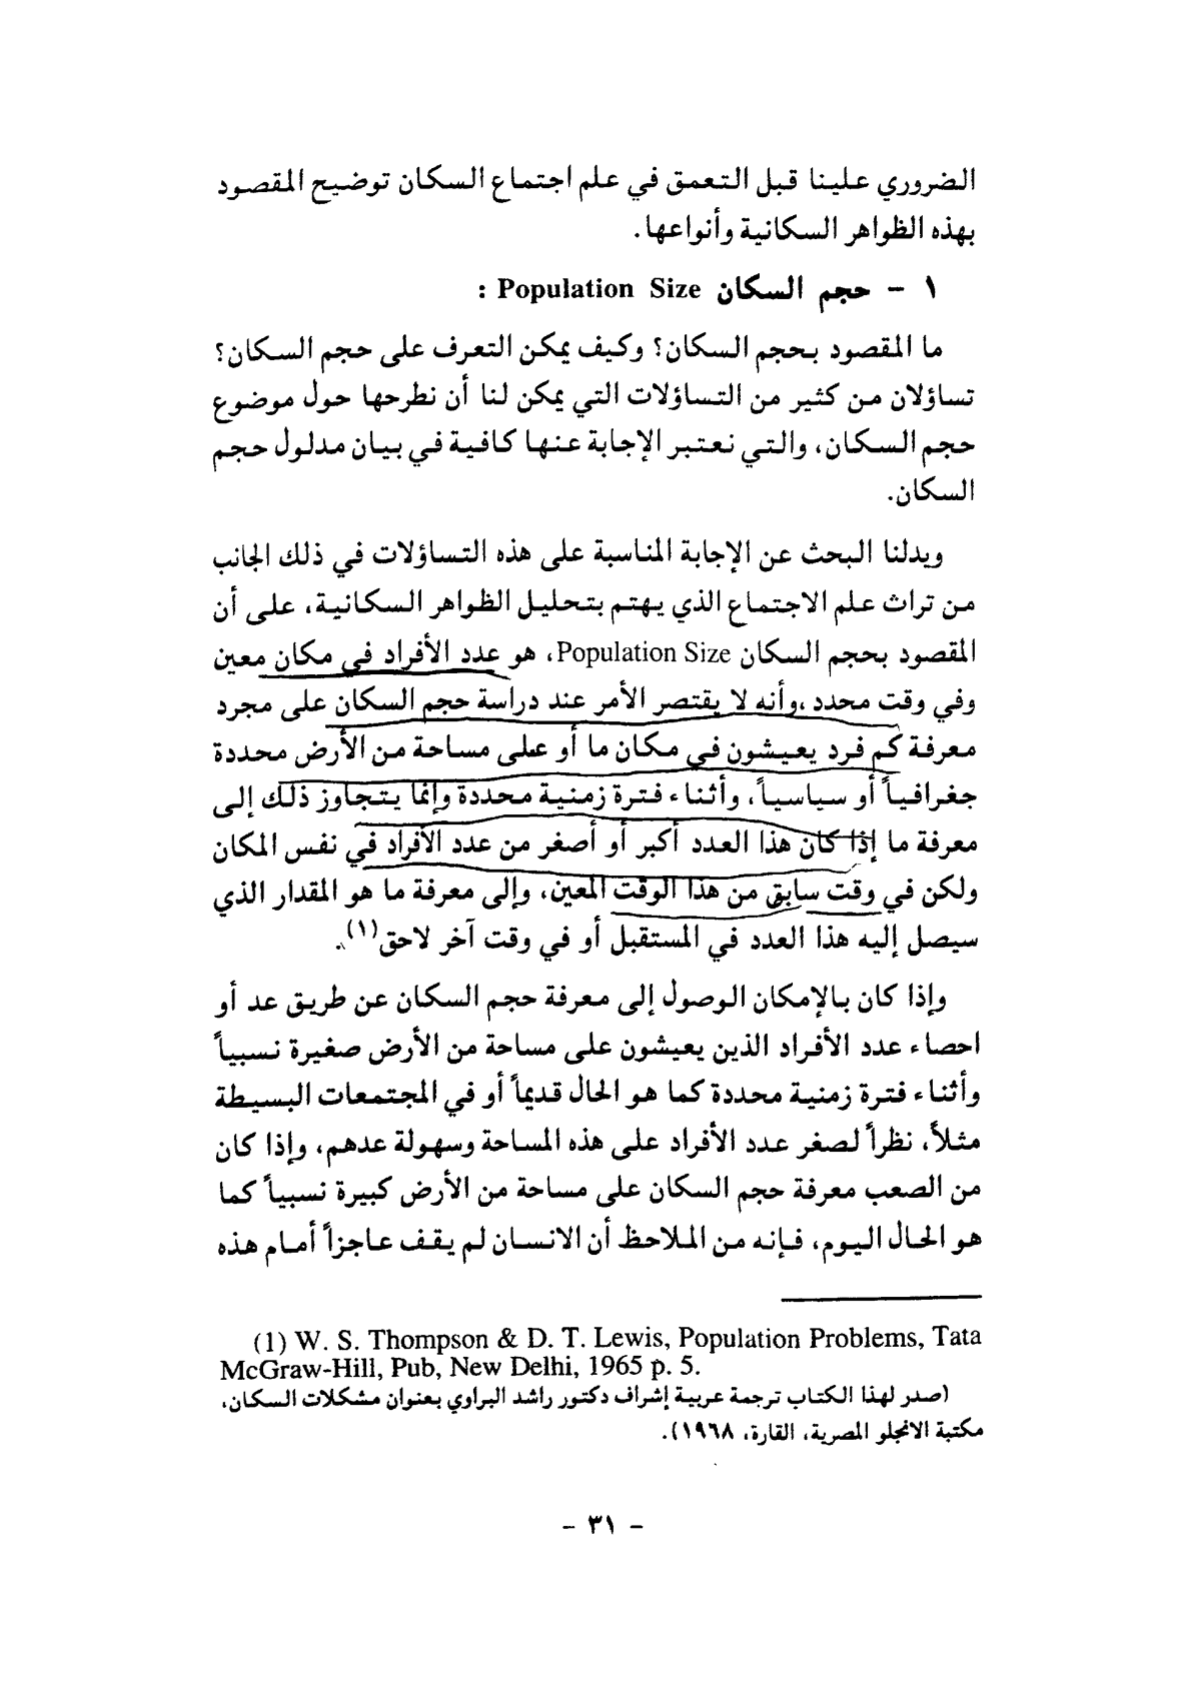 الضروري علينا قبل التعمق في علم اجتماع السكان توضيح المقصود
بهذه الظواهر السكانية وأنواعها.
١ - حجم السكان Population Size :
ما المقصود بحجم السكان؟ وكيف يمكن التعرف على حجم السكان؟
تساؤلان من كثير من التساؤلات التي يمكن لنا أن نطرحها حول موضوع
حجم السكان، والتي نعتبر الإجابة عنها كافية في بيان مدلول حجم
السكان.
ويدلنا البحث عن الإجابة المناسبة على هذه التساؤلات في ذلك الجانب
من تراث علم الاجتماع الذي يهتم بتحليل الظواهر السكانية، على أن
المقصود بحجم السكان Population Size، هو عدد الأفراد في مكان معين
وفي وقت محدد، وأنه لا يقتصر الأمر عند دراسة حجم السكان على مجرد
معرفة كم فرد يعيشون في مكان ما أو على مساحة من الأرض محددة
جغرافياً أو سياسياً، وأثناء فترة زمنية محددة وإنما يتجاوز ذلك إلى
معرفة ما إذا كان هذا العدد أكبر أو أصغر من عدد الأفراد في نفس المكان
ولكن في وقت سابق من هذا الوقت المعين، وإلى معرفة ما هو المقدار الذي
سيصل إليه هذا العدد في المستقبل أو في وقت آخر لاحق(١).
وإذا كان بالإمكان الوصول إلى معرفة حجم السكان عن طريق عد أو
احصاء عدد الأفراد الذين يعيشون على مساحة من الأرض صغيرة نسبياً
وأثناء فترة زمنية محددة كما هو الحال قديماً أو في المجتمعات البسيطة
مثلاً، نظراً لصغر عدد الأفراد على هذه المساحة وسهولة عدهم، وإذا كان
من الصعب معرفة حجم السكان على مساحة من الأرض كبيرة نسبياً كما
هو الحال اليوم، فإنه من الملاحظ أن الانسان لم يقف عاجزاً أمام هذه
(1) W. S. Thompson & D. T. Lewis, Population Problems, Tata
McGraw-Hill, Pub, New Delhi, 1965 p. 5.
(صدر لهذا الكتاب ترجمة عربية إشراف دكتور راشد البراوي بعنوان مشكلات السكان،
مكتبة الانجلو المصرية، القارة، ١٩٦٨).
- ٣١ -